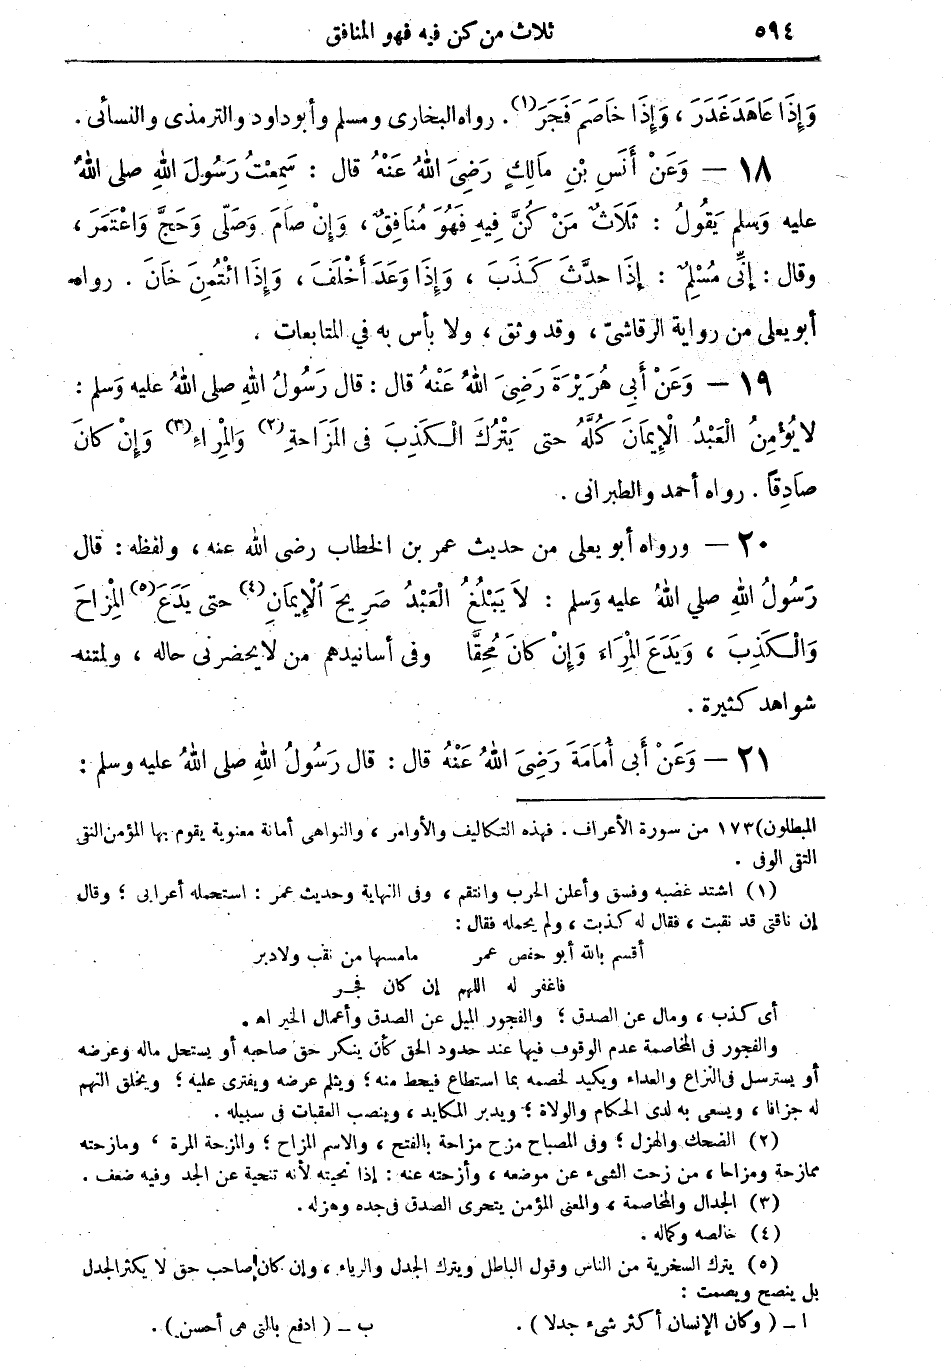 ٥٩٤ ثلاث من كن فيه فهو المنافق
وَإِذَا عَاهَدَ غَدَرَ ، وَإِذَا خَاصَمَ فَجَرَ(١) . رواه البخارى ومسلم وأبو داود والترمذى والنسائى .
١٨ — وَعَنْ أَنَسِ بْنِ مَالِكٍ رَضِىَ اللهُ عَنْهُ قال : سَمِعْتُ رَسُولَ اللهِ صلى اللهُ
عليه وَسلم يَقُولُ : ثَلَاثٌ مَنْ كُنَّ فِيهِ فَهُوَ مُنَافِقٌ ، وَإِنْ صَامَ وَصَلَّى وَحَجَّ وَاعْتَمَرَ ،
وقال : إِنِّى مُسْلِمٌ : إِذَا حدَّثَ كَذَبَ ، وَإِذَا وَعَدَ أَخْلَفَ ، وَإِذَا ائْتُمِنَ خَانَ . رواه
أبو يعلى من رواية الرقاشىّ ، وقد وثق ، ولا بأس به في المتابعات .
١٩ — وَعَنْ أَبِى هُرَيْرَةَ رَضِىَ اللهُ عَنْهُ قال : قال رَسُولُ اللهِ صلى اللهُ عليه وَسلم :
لا يُؤْمِنُ الْعَبْدُ الْإِيمَانَ كُلَّهُ حتى يَتْرُكَ الْكَذِبَ فى المَزَاحَةِ(٢) وَالْمِرَاءِ(٣) وَإِنْ كانَ
صَادِقًا . رواه أحمد والطبرانى .
٢٠ — ورواه أبو يعلى من حديث عمر بن الخطاب رضى الله عنه ، ولفظه : قال
رَسُولُ اللهِ صلي اللهُ عليه وَسلم : لاَ يَبْلُغُ الْعَبْدُ صَرِيحَ الْإِيمَانِ(٤) حتى يَدَعَ(٥) الْمِزَاحَ
وَالْكَذِبَ ، وَيَدَعَ الْمِرَاءَ وَإِنْ كانَ مُحِقًّا وفى أسانيدهم من لا يحضرنى حاله ، ولمتنه
شواهد كثيرة .
٢١ — وَعَنْ أَبى أُمَامَةَ رَضِىَ اللهُ عَنْهُ قال : قال رَسُولُ اللهِ صلى اللهُ عليه وسلم :
المبطلون) ١٧٣ من سورة الأعراف . فهذه التكاليف والأوامر ، والنواهى أمانة معنوية يقوم بها المؤمن النقى
التقى الوفى .
(١) اشتد غضبه وفسق وأعلن الحرب وانتقم ، وفى النهاية وحديث عمر : استحمله أعرابى ؛ وقال
إن ناقتى قد نقبت ، فقال له كذبت ، ولم يحمله فقال :
أقسم بالله أبو حفص عمر مامسها من نقب ولا دبر
فاغفر له اللهم إن كان فجر
أى كذب ، ومال عن الصدق ؛ والفجور الميل عن الصدق وأعمال الخير اه .
والفجور فى المخاصمة عدم الوقوف فيها عند حدود الحق كأن ينكر حق صاحبه أو يستحل ماله وعرضه
أو يسترسل فى النزاع والعداء ويكيد لخصمه بما استطاع فيحط منه ؛ ويثلم عرضه ويفترى عليه ؛ ويخلق التهم
له جزافا ، ويسعى به لدى الحكام والولاة ؛ ويدبر المكايد ، وينصب العقبات فى سبيله .
(٢) الضحك والهزل ؛ وفى المصباح مزح مزاحة بالفتح ، والاسم المزاح ؛ والمزحة المرة ، ومازحته
ممازحة ومزاحا ، من زحت الشىء عن موضعه ، وأزحته عنه : إذا نحيته لأنه تنحية عن الجد وفيه ضعف .
(٣) الجدال والمخاصمة ، والمعنى المؤمن يتحرى الصدق فى جده وهزله .
(٤) خالصه وكماله .
(٥) يترك السخرية من الناس وقول الباطل ويترك الجدل والرياء ، وإن كان صاحب حق لا يكثر الجدل
بل ينصح ويصمت :
ا ــ ( وكان الإنسان أكثر شىء جدلا ) . ب ــ ( ادفع بالتى هى أحسن ) .